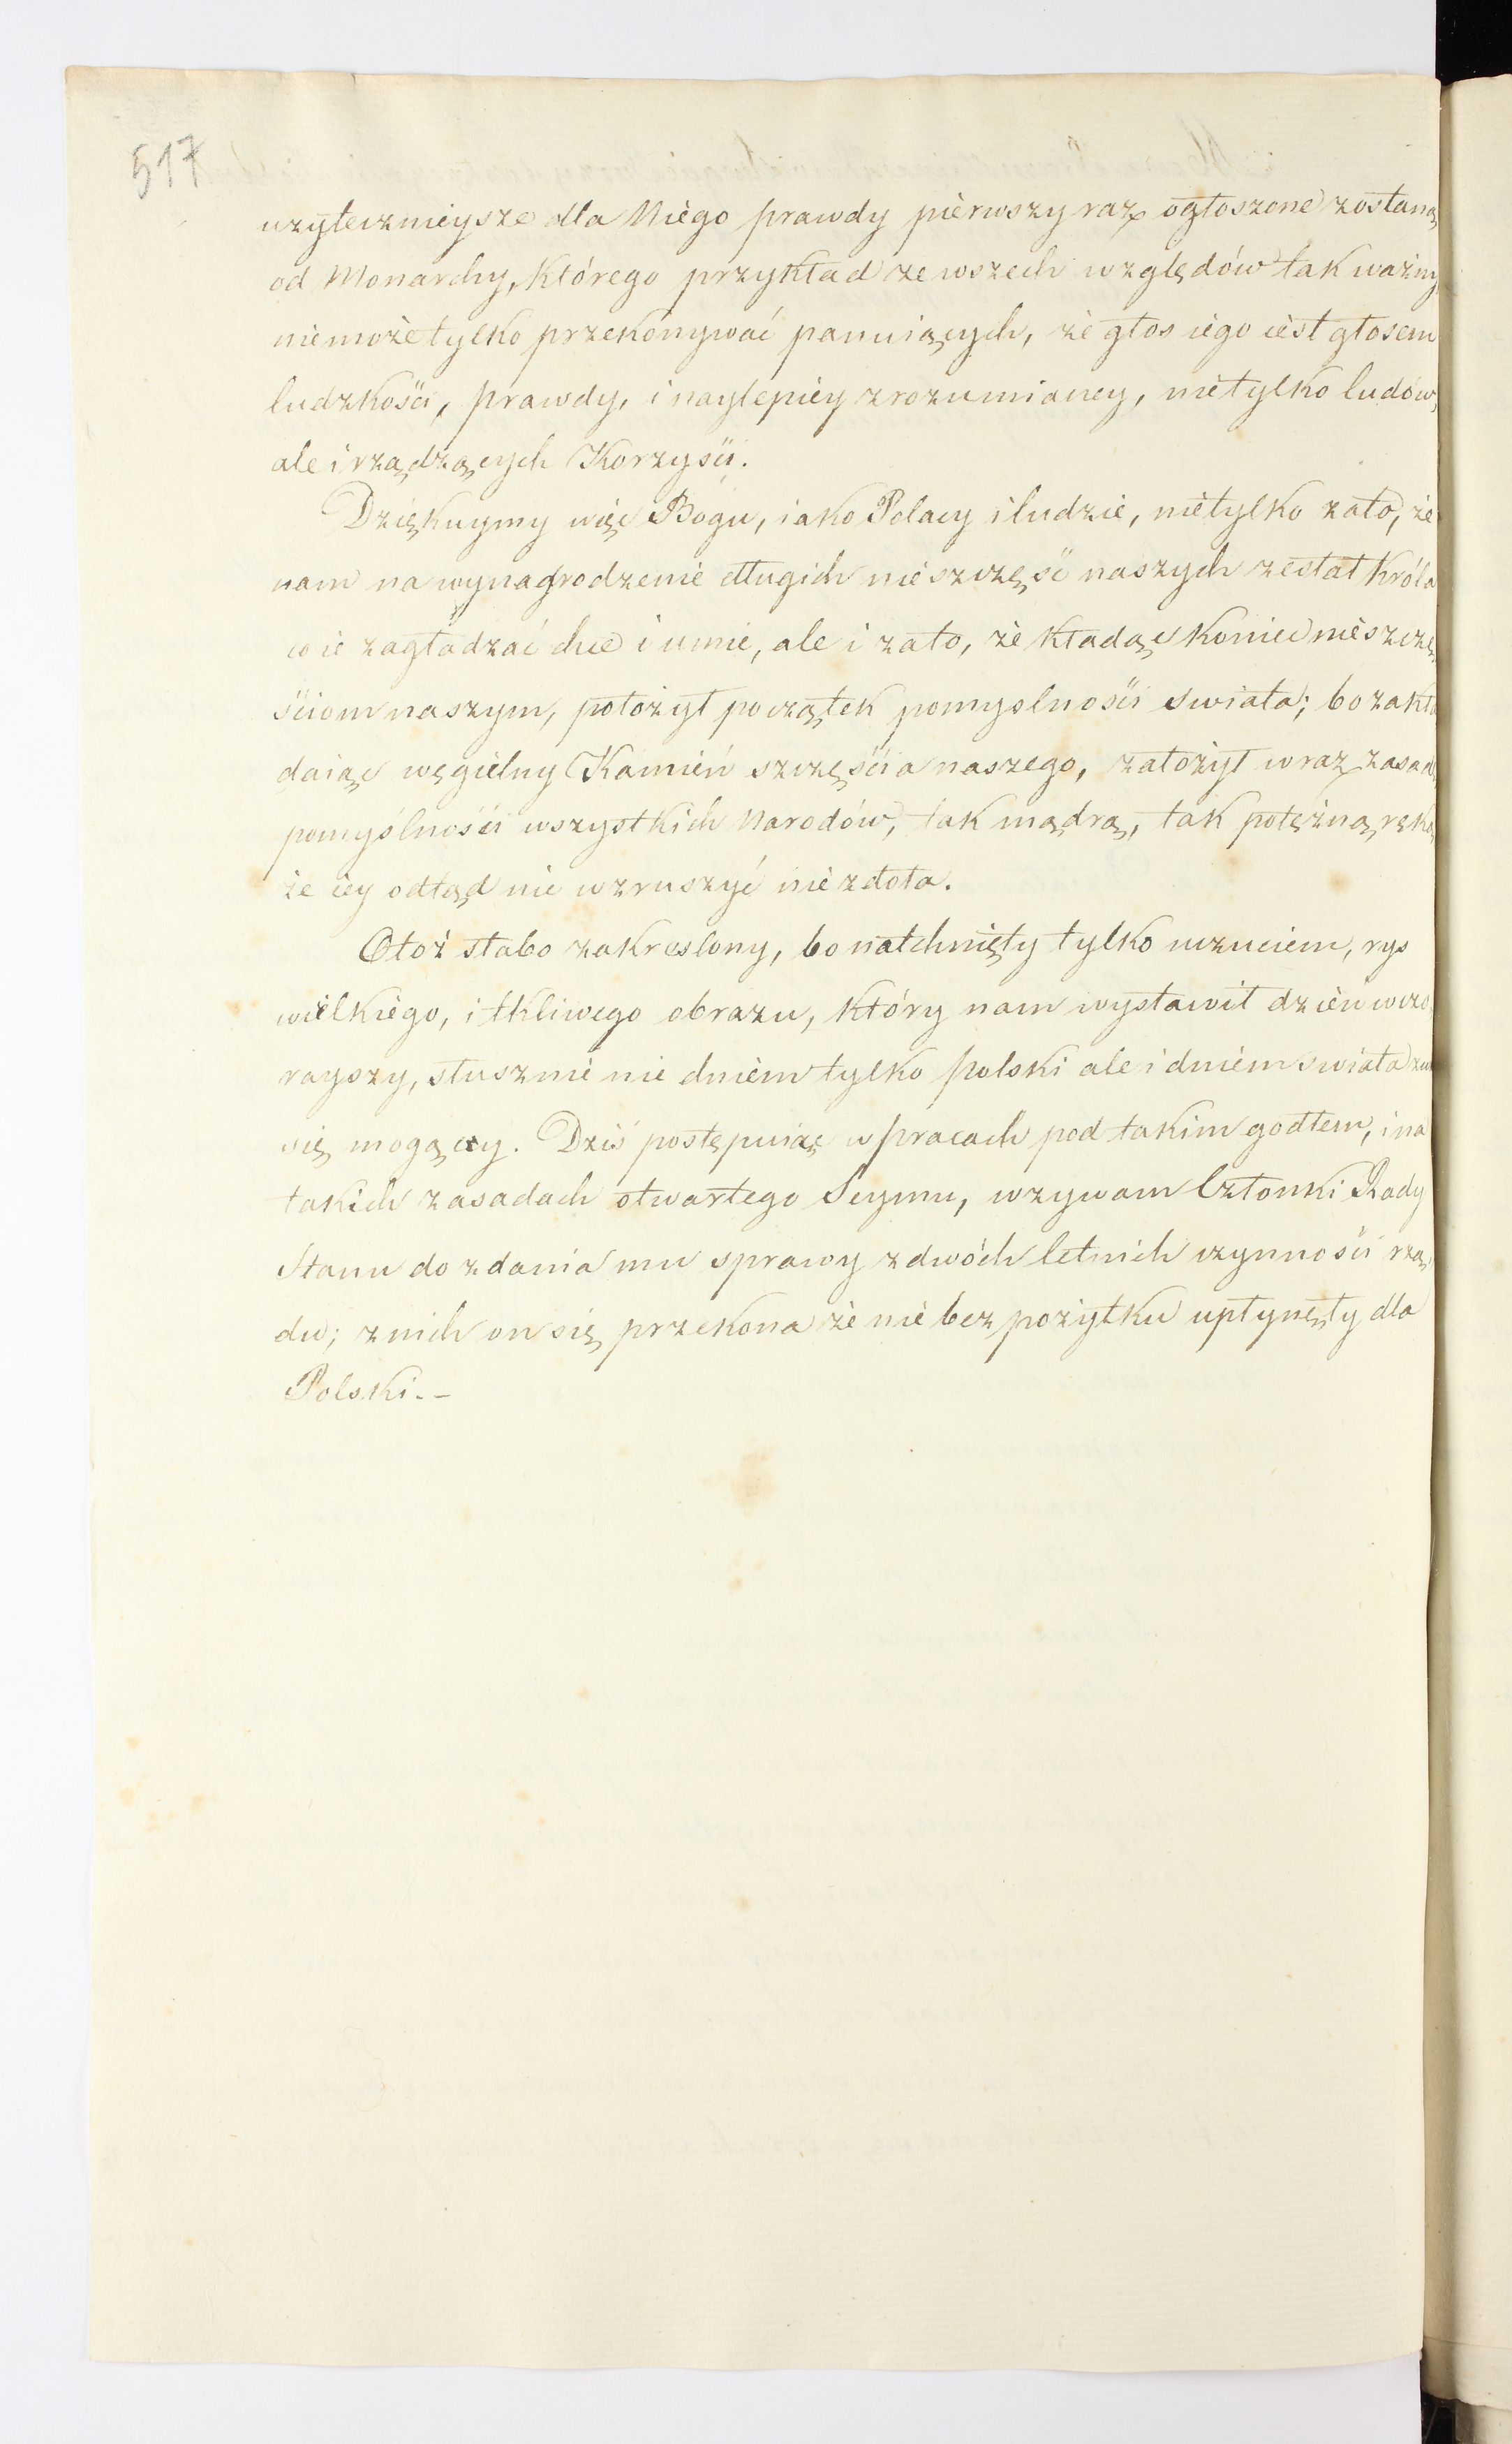 517
użytecznieysze dla Niego prawdy pierwszy raz ogłoszone zostaną
od Monarchy, którego przykład ze wszech względów tak ważny
niemoże tylko przekonywać panuiących, że głos iego iest głosem
ludzkości, prawdy, i naylepiey zrozumianey, nietylko ludów,
ale i rządzących Korzyści.
Dziękuymy więc Bogu, iako Polacy i ludzie, nietylko zato, że
nam na wynagrodzenie długich nieszczęść naszych zesłał Króla
co ie zagładzać chce i umie, ale i zato, że kładąc koniec nieszczę-
ściom naszym, położył początek pomyslności swiata; bo zakła
daiąc węgielny Kamień szczęścia naszego, założył wraz zasad
pomyślności wszystkich Narodów, tak mądrą, tak potężną ręką
że iey odtąd nic wzruszyć niezdoła.
Otoż słabo zakreslony, bo natchnięty tylko uczuciem, rys
wielkiego, i tkliwego obrazu, który nam wystawił dzień wczo
rayszy, słusznie nie dniem tylko polski ale i dniem swiata zwa
się mogący. Dziś postępuiąc w pracach pod takim godłem, i na
takich zasadach otwartego Seymu, wzywam Członki Rady
Stanu do zdania mu sprawy z dwóch letnich czynności rzą
du; z nich on się przekona że nie bez pożytku upłynęły dla
Polski. -